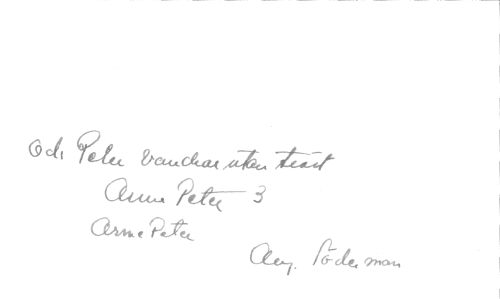 Och Peter vandrar utan tröst
Arme Peter 3
Arme Peter
Aug. Söderman